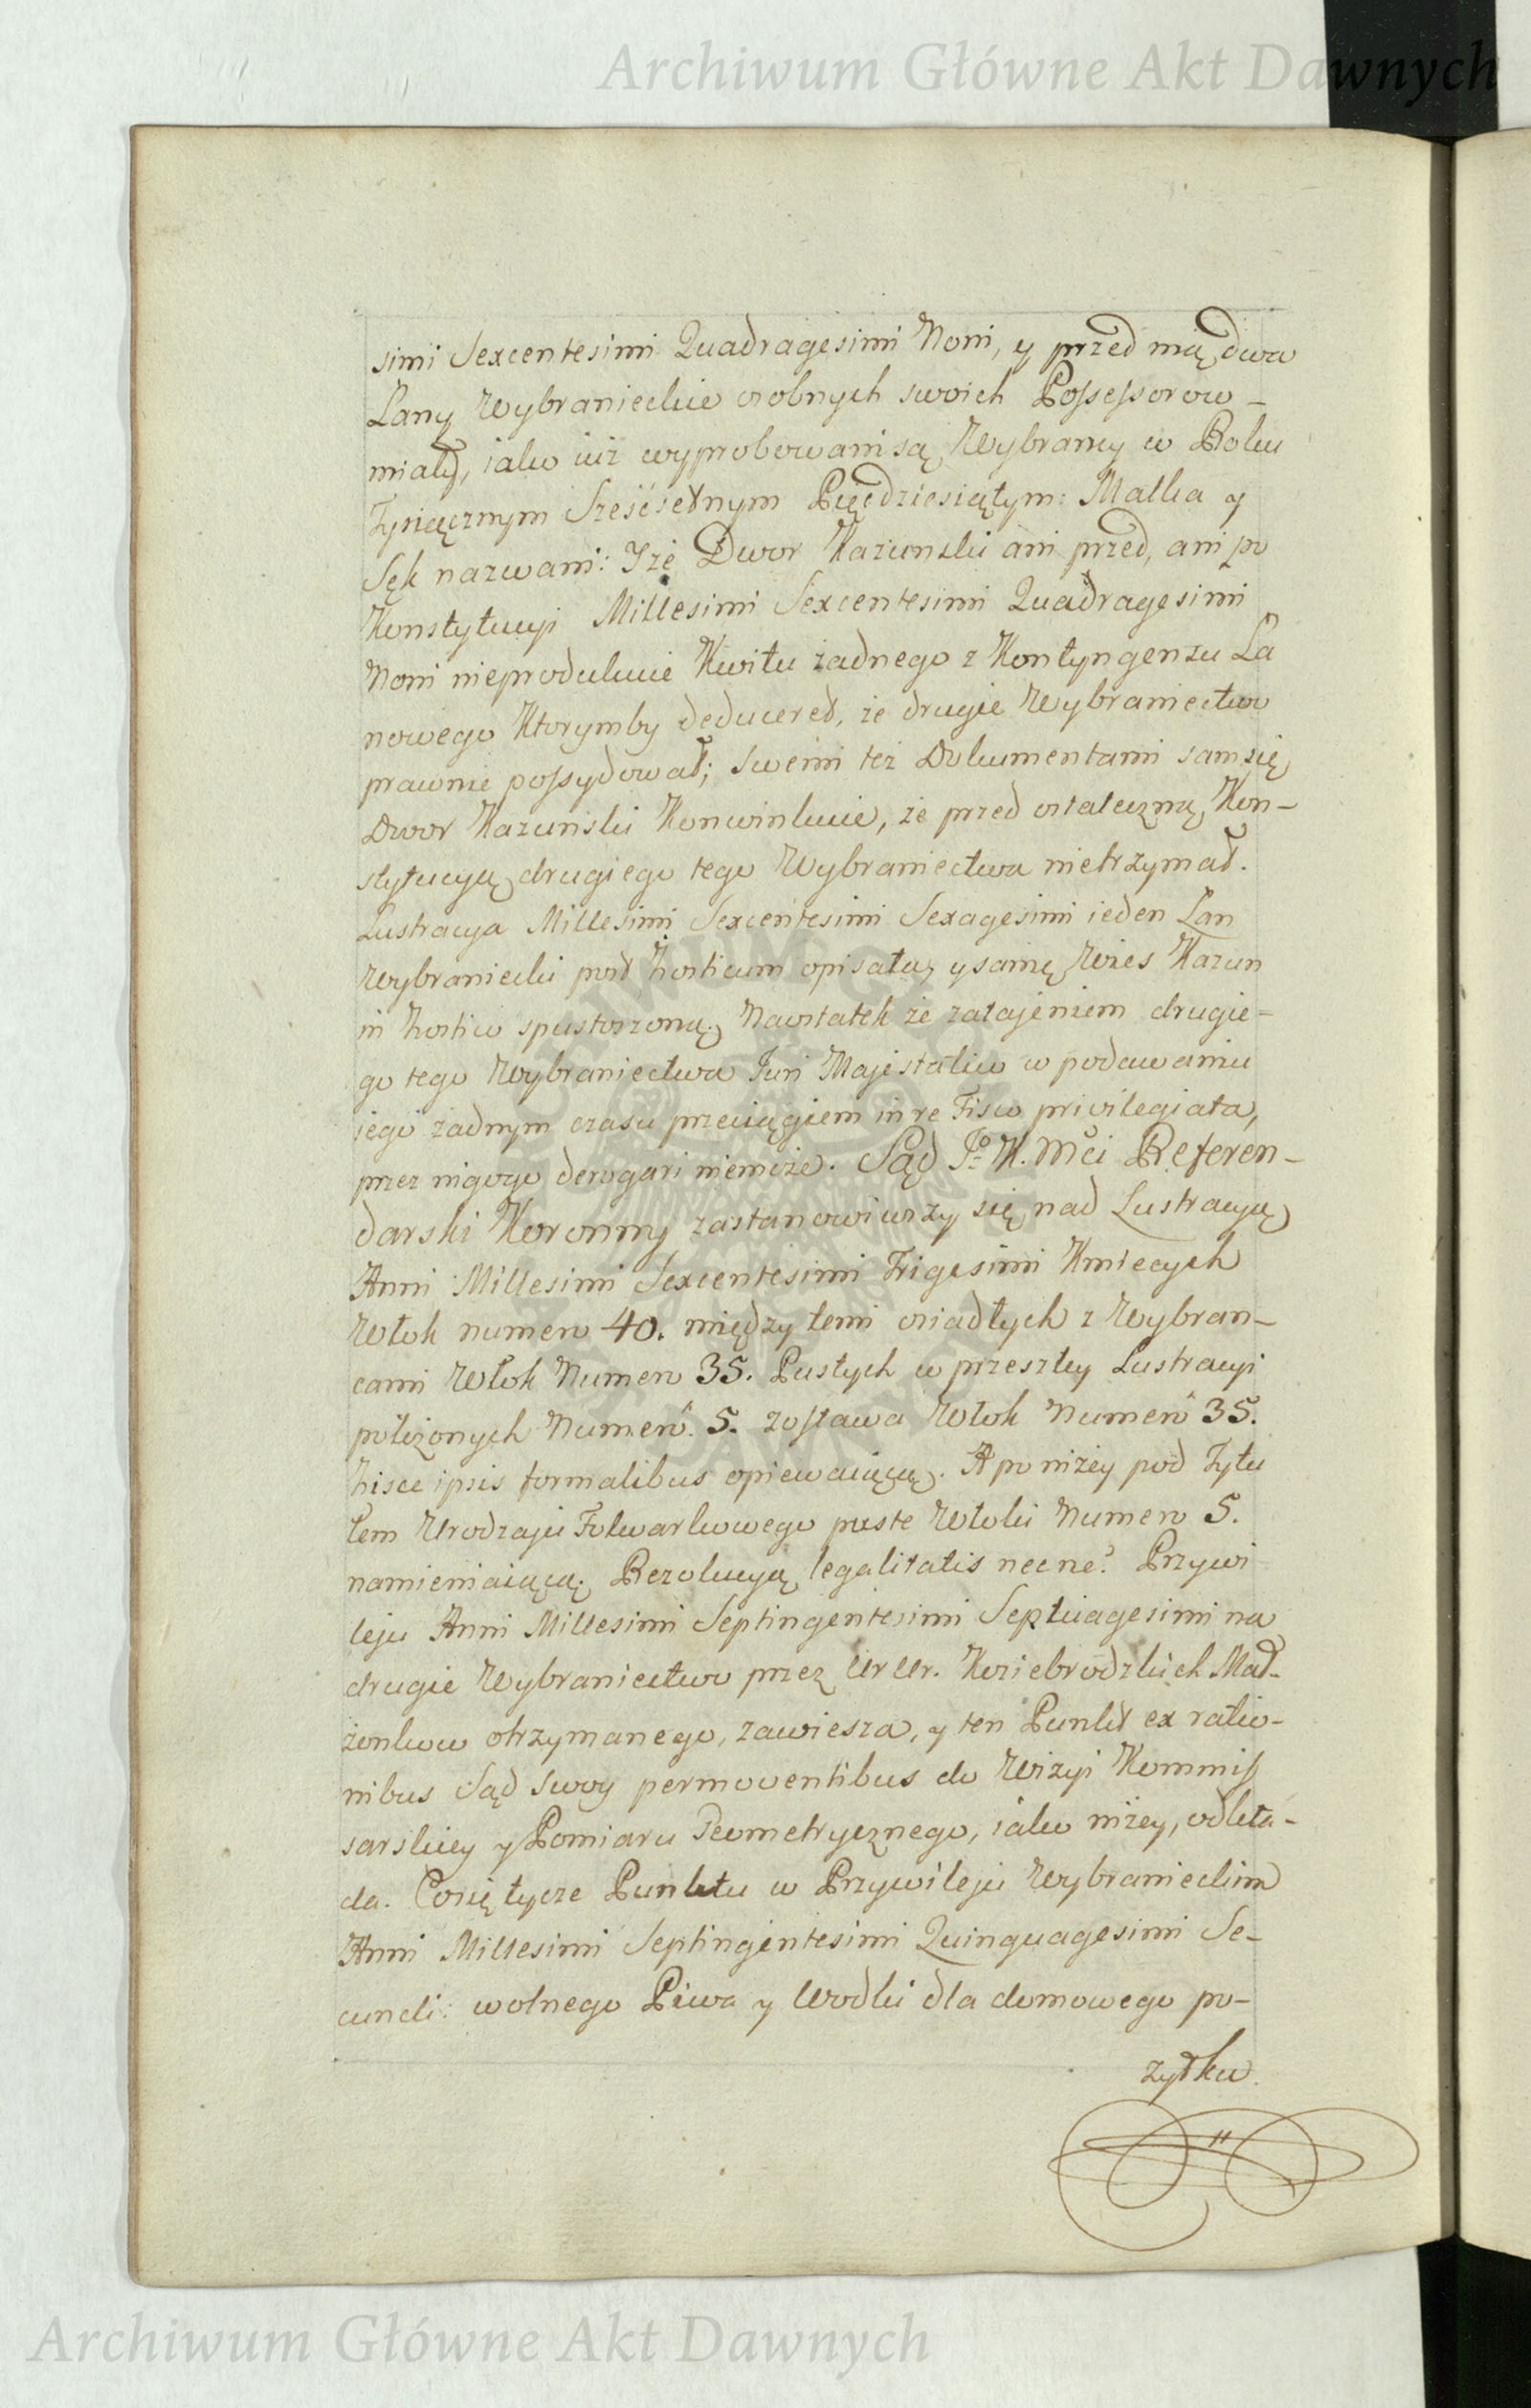 Archiwum Główne Akt Dawnych
simi Sexcentesimi Quadragesimi Noni, y przed nią dwa
Łany Wybranieckie osobnych swoich Possessorow
miały, iako iuż wyprobowani są Wybrańcy w Roku
Tysiącznym Sześćsetnym Pięćdziesiątym: Matka y
Sęk nazwani: Iże Dwor Kazunski ani przed, ani po
Konstytucyi Millesimi Sexcentesimi Quadragesimi
Noni nieprodukuie Kwitu żadnego z Kontyngensu Ła
nowego Ktorymby deduceret, że drugie Wybraniectwo
prawnie possydował; Swemi też Dokumentami sam się
Dwor Kazuński Konwinkuie, że przed ostateczną Kon-
stytucyą drugiego tego Wybraniectwa nietrzymał.
Lustracya Millesimi Sexcentesimi Sexagesimi ieden Łan
Wybraniecki post hosticum opisała, y samę Wieś Kazun
in hostico spustoszoną. Naostatek że zatajeniem drugie-
go tego Wybraniectwa Juri Majestatico w podawaniu
iego żadnym czasu przeciągiem in re Fisco privilegiata,
przez nigogo derogari niemoże. Sąd Jo K. Mci Referen-
darski Koronny zastanowiwszy się nad Lustracyą
Anni Millesimi Sexcentesimi Trigesimi Kmiecych
Włok numero 40. między temi osiadłych z Wybran-
cami Włok Numero 35. Pustych w przeszłey Lustracyi
położonych Numero. 5. zostawa Włok Numero 35.
hisce ipsis formalibus opiewaiącą. A po niżey pod Tytu
łem Urodzaju Folwarkowego puste Włoki Numero 5.
namieniaiącą. Rezolucyą legalitatis necne? Przywi
leju Anni Millesimi Septingentesimi Septuagesimi na
drugie Wybraniectwo przez Ur Ur. Koziebrodzkich Mał-
żonkow otrzymanego, zawiesza, y ten Punkt ex ratio-
nibus Sąd Swoy permoventibus do Wizyi Kommis
sarskiey y Pomiaru Geometrycznego, iako niżey, odkła-
da. Co się tycze Punktu w Przywileju Wybranieckim
Anni Millesimi Septingentesimi Quinquagesimi Se-
cundi: wolnego Piwa y Wodki dla domowego po-
zytku.
Archiwum Główne Akt Dawnych